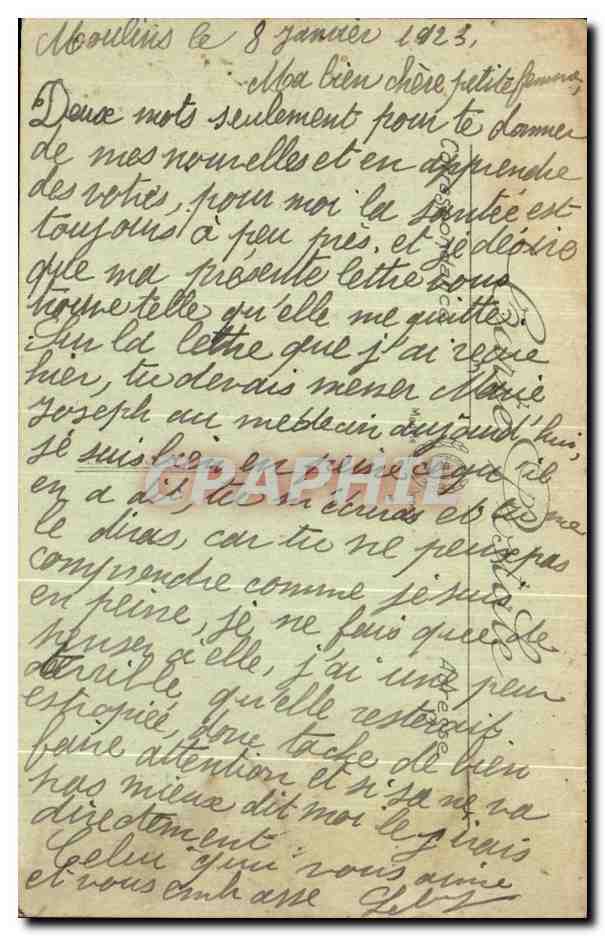 Moulins le 8 Janvier 1923,
Ma bien chère petite femme,
Deux mots seulement pour te donner
de mes nouvelles et en apprendre
des votres, pour moi la santée est
toujours à peu près, et je désire
que ma présente lettre vous
trouve telle qu'elle me quitte.
Sur la lettre que j'ai reçue
hier, tu devais mener Marie
Joseph au medecin aujourd'hui,
je suis bien en peine ce qu'il
en a dit, tu m'écriras et tu me
le diras, car tu ne peux pas
comprendre comme je suis
en peine, je ne fais que de
penser à elle, j'ai une peur
terrible qu'elle resterait
estropiée, donc tache de bien
faire attention et si sa ne va
pas mieux dit moi le j'irais
directement.
Celui qui vous aime
et vous embrasse
Carte Postale
Correspondance
Adresse
CPAPHIL